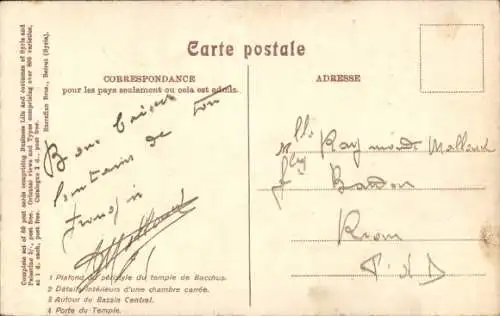 Carte postale
CORRESPONDANCE
pour les pays seulement ou cela est admis.
ADRESSE
Complete set of 50 post cards comprising Business Life and costumes of Syria and
Palestine 3/, post free. Orienter views and Types comprising over 800 varieties,
at 1 d. each, post free. Catalogue 2 d., post free.
Sarrafian Bros., Beirut (Syria).
Bons baisers
lointains de ton
M
Mlle Raymonde
Riom
P. d. D
1 Plafond du péristyle du temple de Bacchus.
2 Détails intérieurs d'une chambre carrée.
3 Autour de Bassin Central.
4 Porte du Temple.